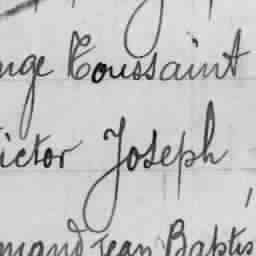 nge Toussaint
ictor Joseph
mand Jean Baptis